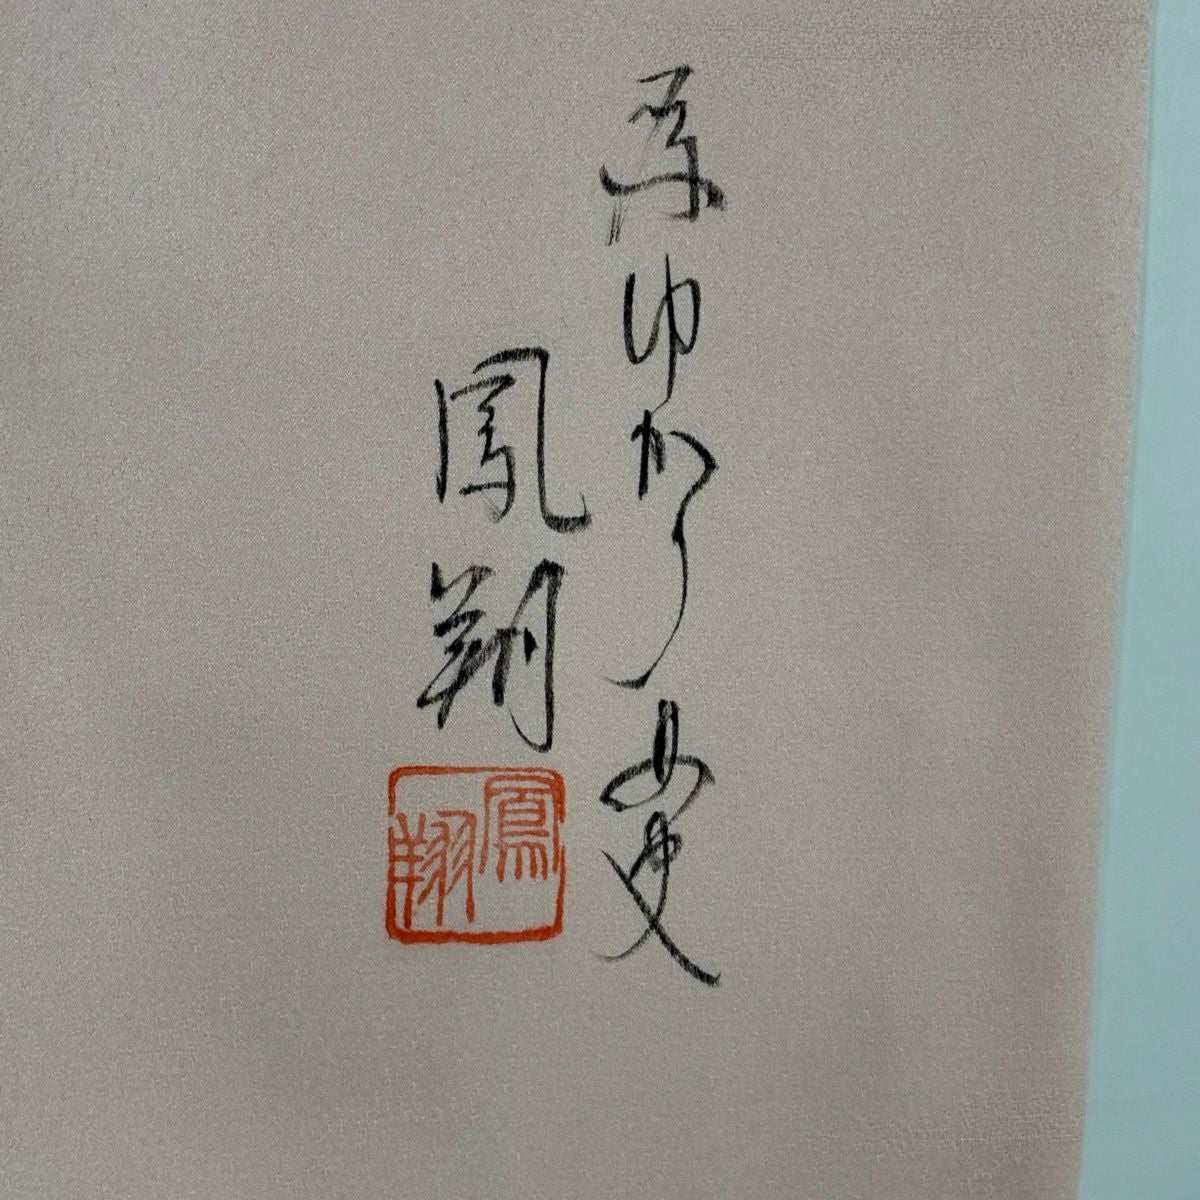 ゆかり女史
鳳翔
鳳翔